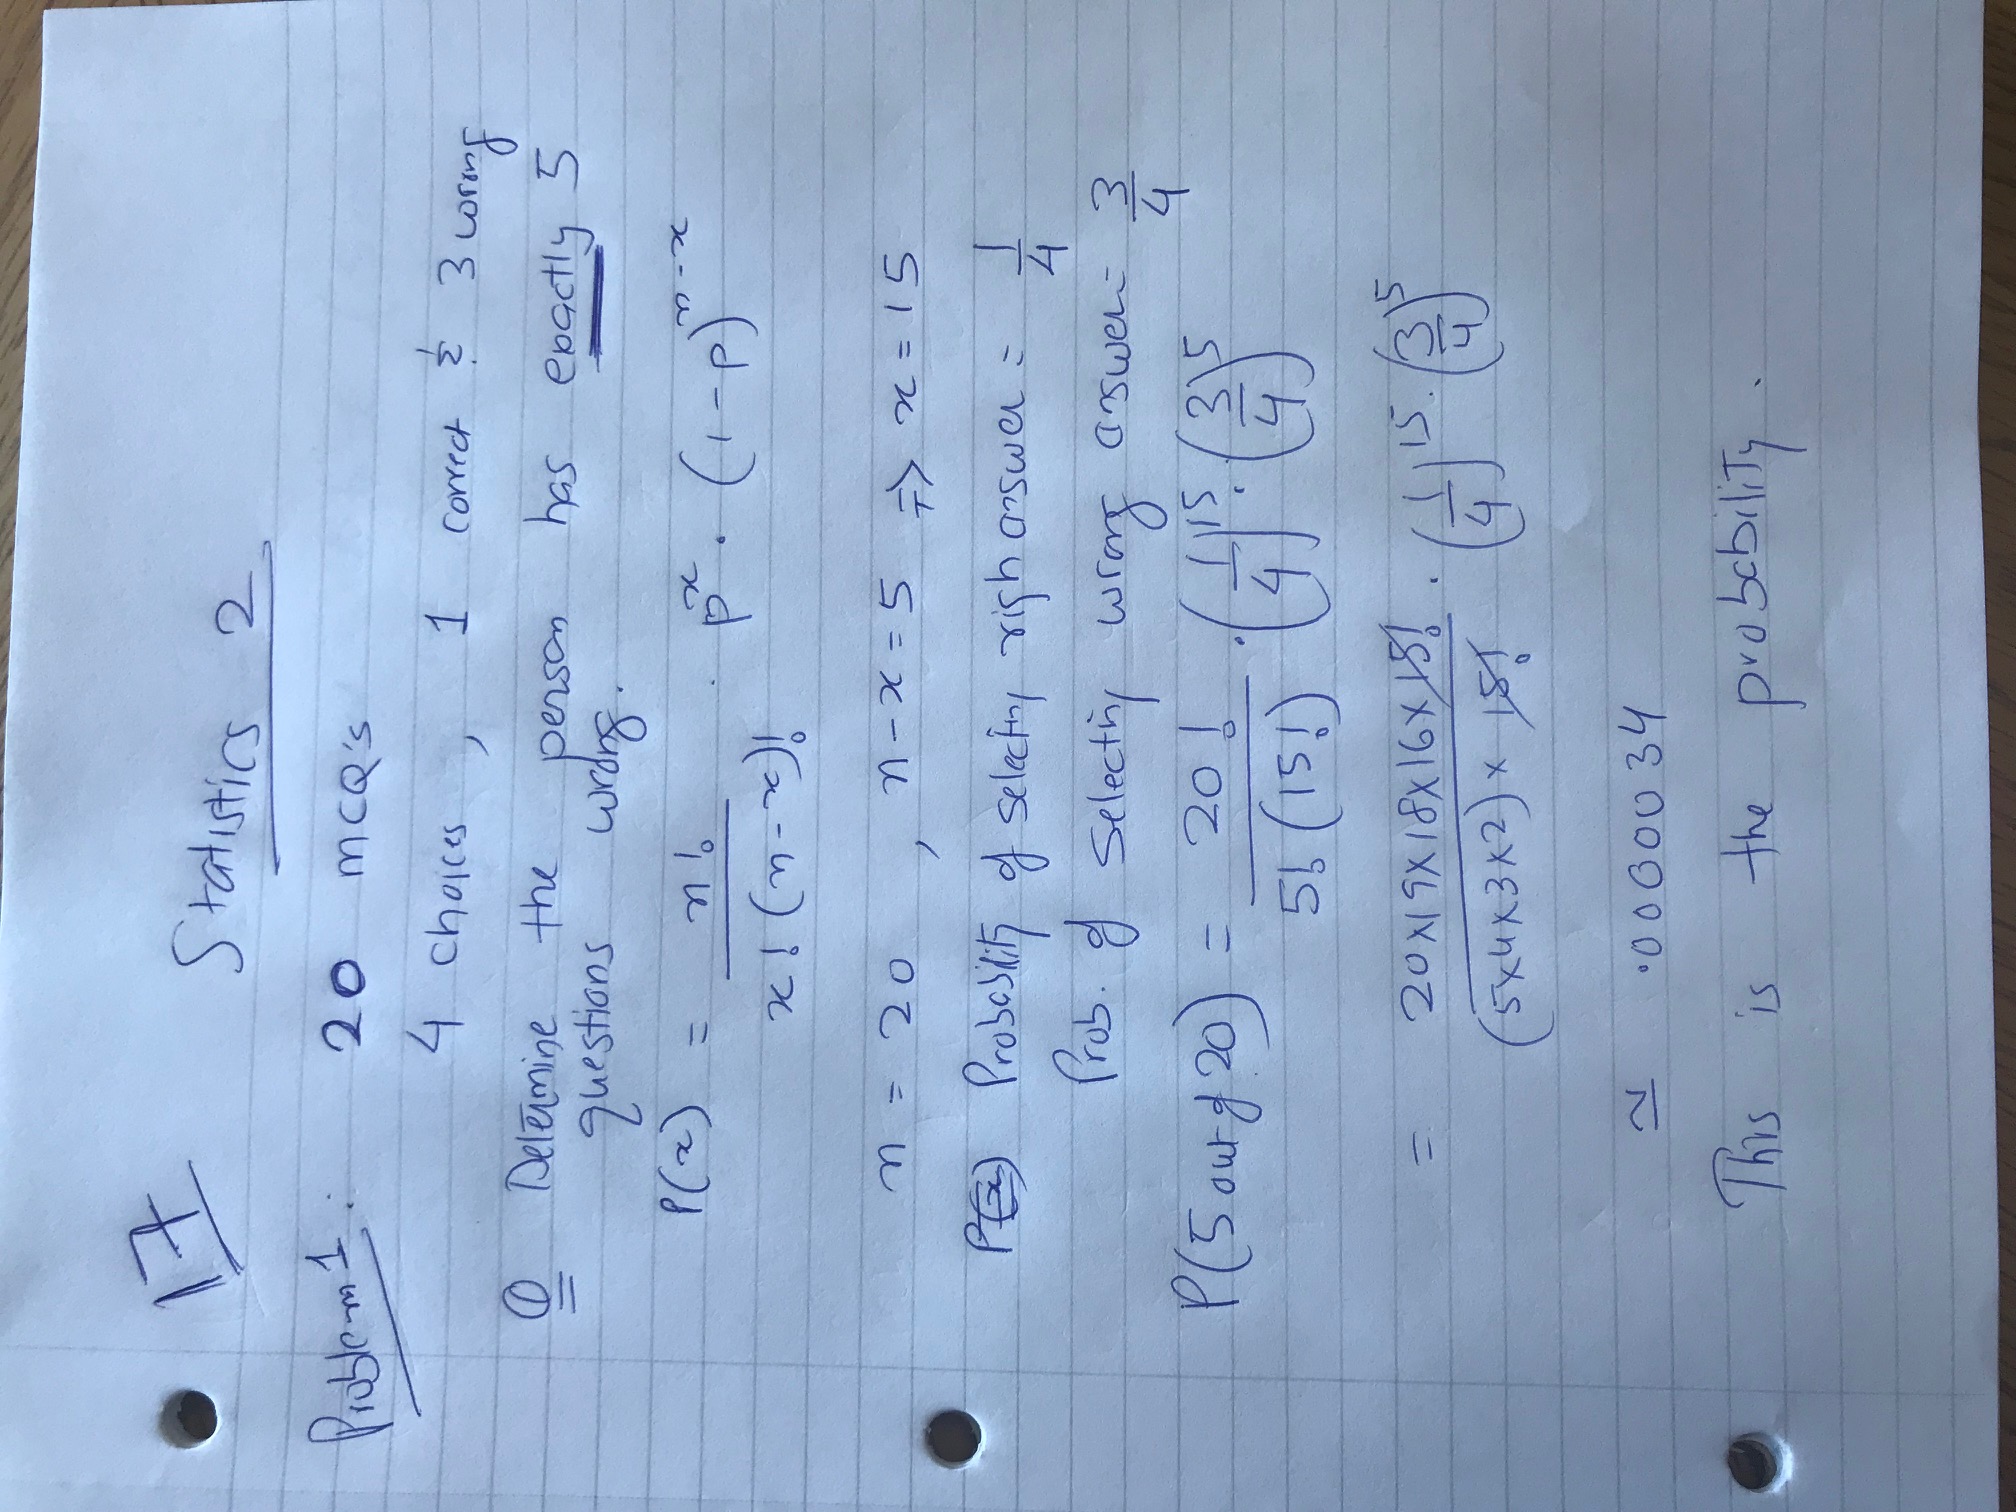 17
Statistics 2
Problem 1: 20 MCQ's
4 choices, 1 correct & 3 wrong
Q Determine the person has exactly 5
questions wrong.
P(x) = n! / x!(n-x)! . p^x . (1-p)^(n-x)
n = 20, n-x = 5 => x = 15
P(x) Probability of selecting righ answer = 1/4
Prob. of selecting wrong answer = 3/4
P(5 out of 20) = 20! / 5!(15!) . (1/4)^15 . (3/4)^5
= 20x19x18x16x15! / (5x4x3x2) x 15! . (1/4)^15 . (3/4)^5
≃ .0000034
This is the probability.